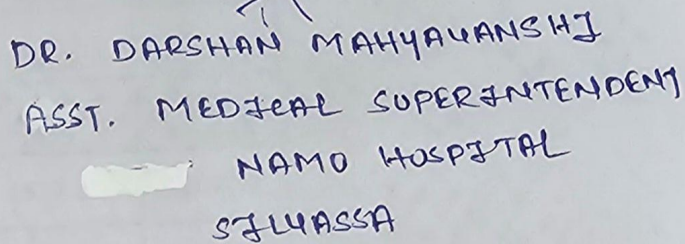 DR. DARSHAN MAHYAVANSHI
ASST. MEDICAL SUPERINTENDENT
NAMO HOSPITAL
SILVASSA